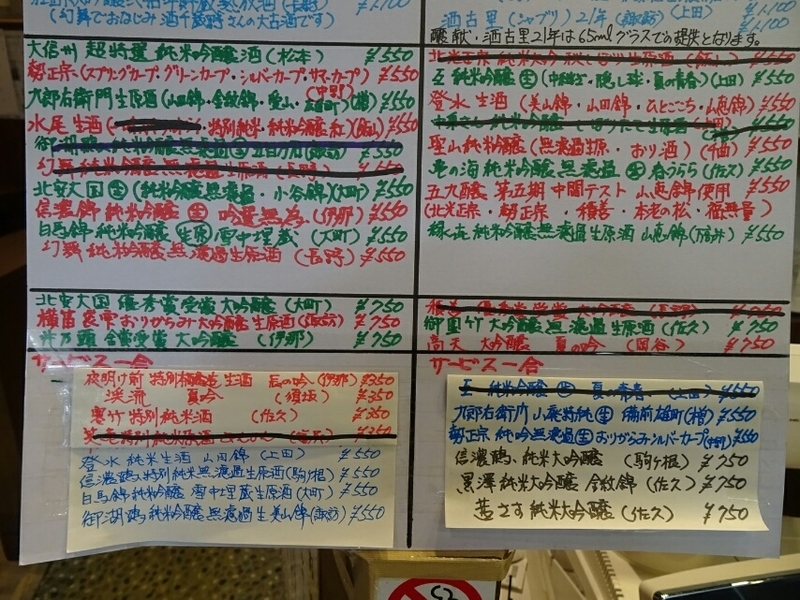 (幻舞でおなじみ 酒千蔵野さんの大古酒です)
大信州 超特選 純米吟醸酒 (松本) ¥550
勢正宗(スプリングカープ・グリーンカープ・シルバーカープ・サマーカープ) ¥550
(中野)
九郎右衛門 生原酒(山田錦・金紋錦・愛山・雄町)(木曽) ¥550
水尾 生酒( 特別純米・純米吟醸 紅)(飯山) ¥550
幻舞 純米吟醸 無濾過生原酒 (長野) ¥550
北安大国 生 (純米吟醸 無濾過・小谷錦)(大町) ¥550
信濃錦 純米吟醸 生 吟量無為 (伊那) ¥550
白馬錦 純米吟醸 生原 雪中埋蔵 (大町) ¥550
幻舞 純米吟醸 無濾過生原酒 (長野) ¥550
北安大国 優秀賞受賞 大吟醸 (大町) ¥750
横笛 袋雫おりがらみ大吟醸 生原酒 (諏訪) ¥750
井乃頭 金賞受賞 大吟醸 (伊那) ¥750
サービス一合
夜明け前 特別本醸造 生酒 辰の吟 (伊那) ¥350
渓流 夏吟 (須坂) ¥350
寒竹 特別純米酒 (佐久) ¥350
登水 純米生酒 山田錦 (上田) ¥550
信濃鶴 特別純米 無濾過生原酒 (駒ヶ根) ¥550
白馬錦 純米吟醸 雪中埋蔵生原酒 (大町) ¥550
御湖鶴 純米吟醸 無濾過生 美山錦 (諏訪) ¥550
酒古里 (シャブリ) 21年 (諏訪) (上田) ¥1,100
醸献・酒古里21年は65mlグラスでの提供となります。
五 純米吟醸 生 (中取り・隠し球・夏の青春) (上田) ¥550
登水 生酒 (美山錦・山田錦・ひとごこち・山恵錦) ¥550
聖山 純米吟醸 (無濾過生原・おり酒) (千曲) ¥550
亀の海 純米吟醸 無濾過 生 春うらら (佐久) ¥550
五九醸 第五期 中間テスト 山恵錦使用
(北光正宗・勢正宗・積善・本老の松・福無量) ¥550
縁喜 純米吟醸 無濾過生原酒 山恵錦 ¥550
積善 優秀賞受賞 大吟醸 (長野)
御園竹 大吟醸 無濾過生原酒 (佐久) ¥750
高天 大吟醸 夏の吟 (岡谷) ¥750
サービス一合
五 純米吟醸 生 夏の青春 (上田) ¥550
九郎右衛門 山廃特純 生 備前雄町 (木曽) ¥550
勢正宗 純吟 無濾過 生 おりがらみシルバーカープ (中野) ¥550
信濃鶴 純米大吟醸 (駒ヶ根) ¥750
黒澤 純米大吟醸 金紋錦 (佐久) ¥750
若ざす 純米大吟醸 (佐久) ¥750